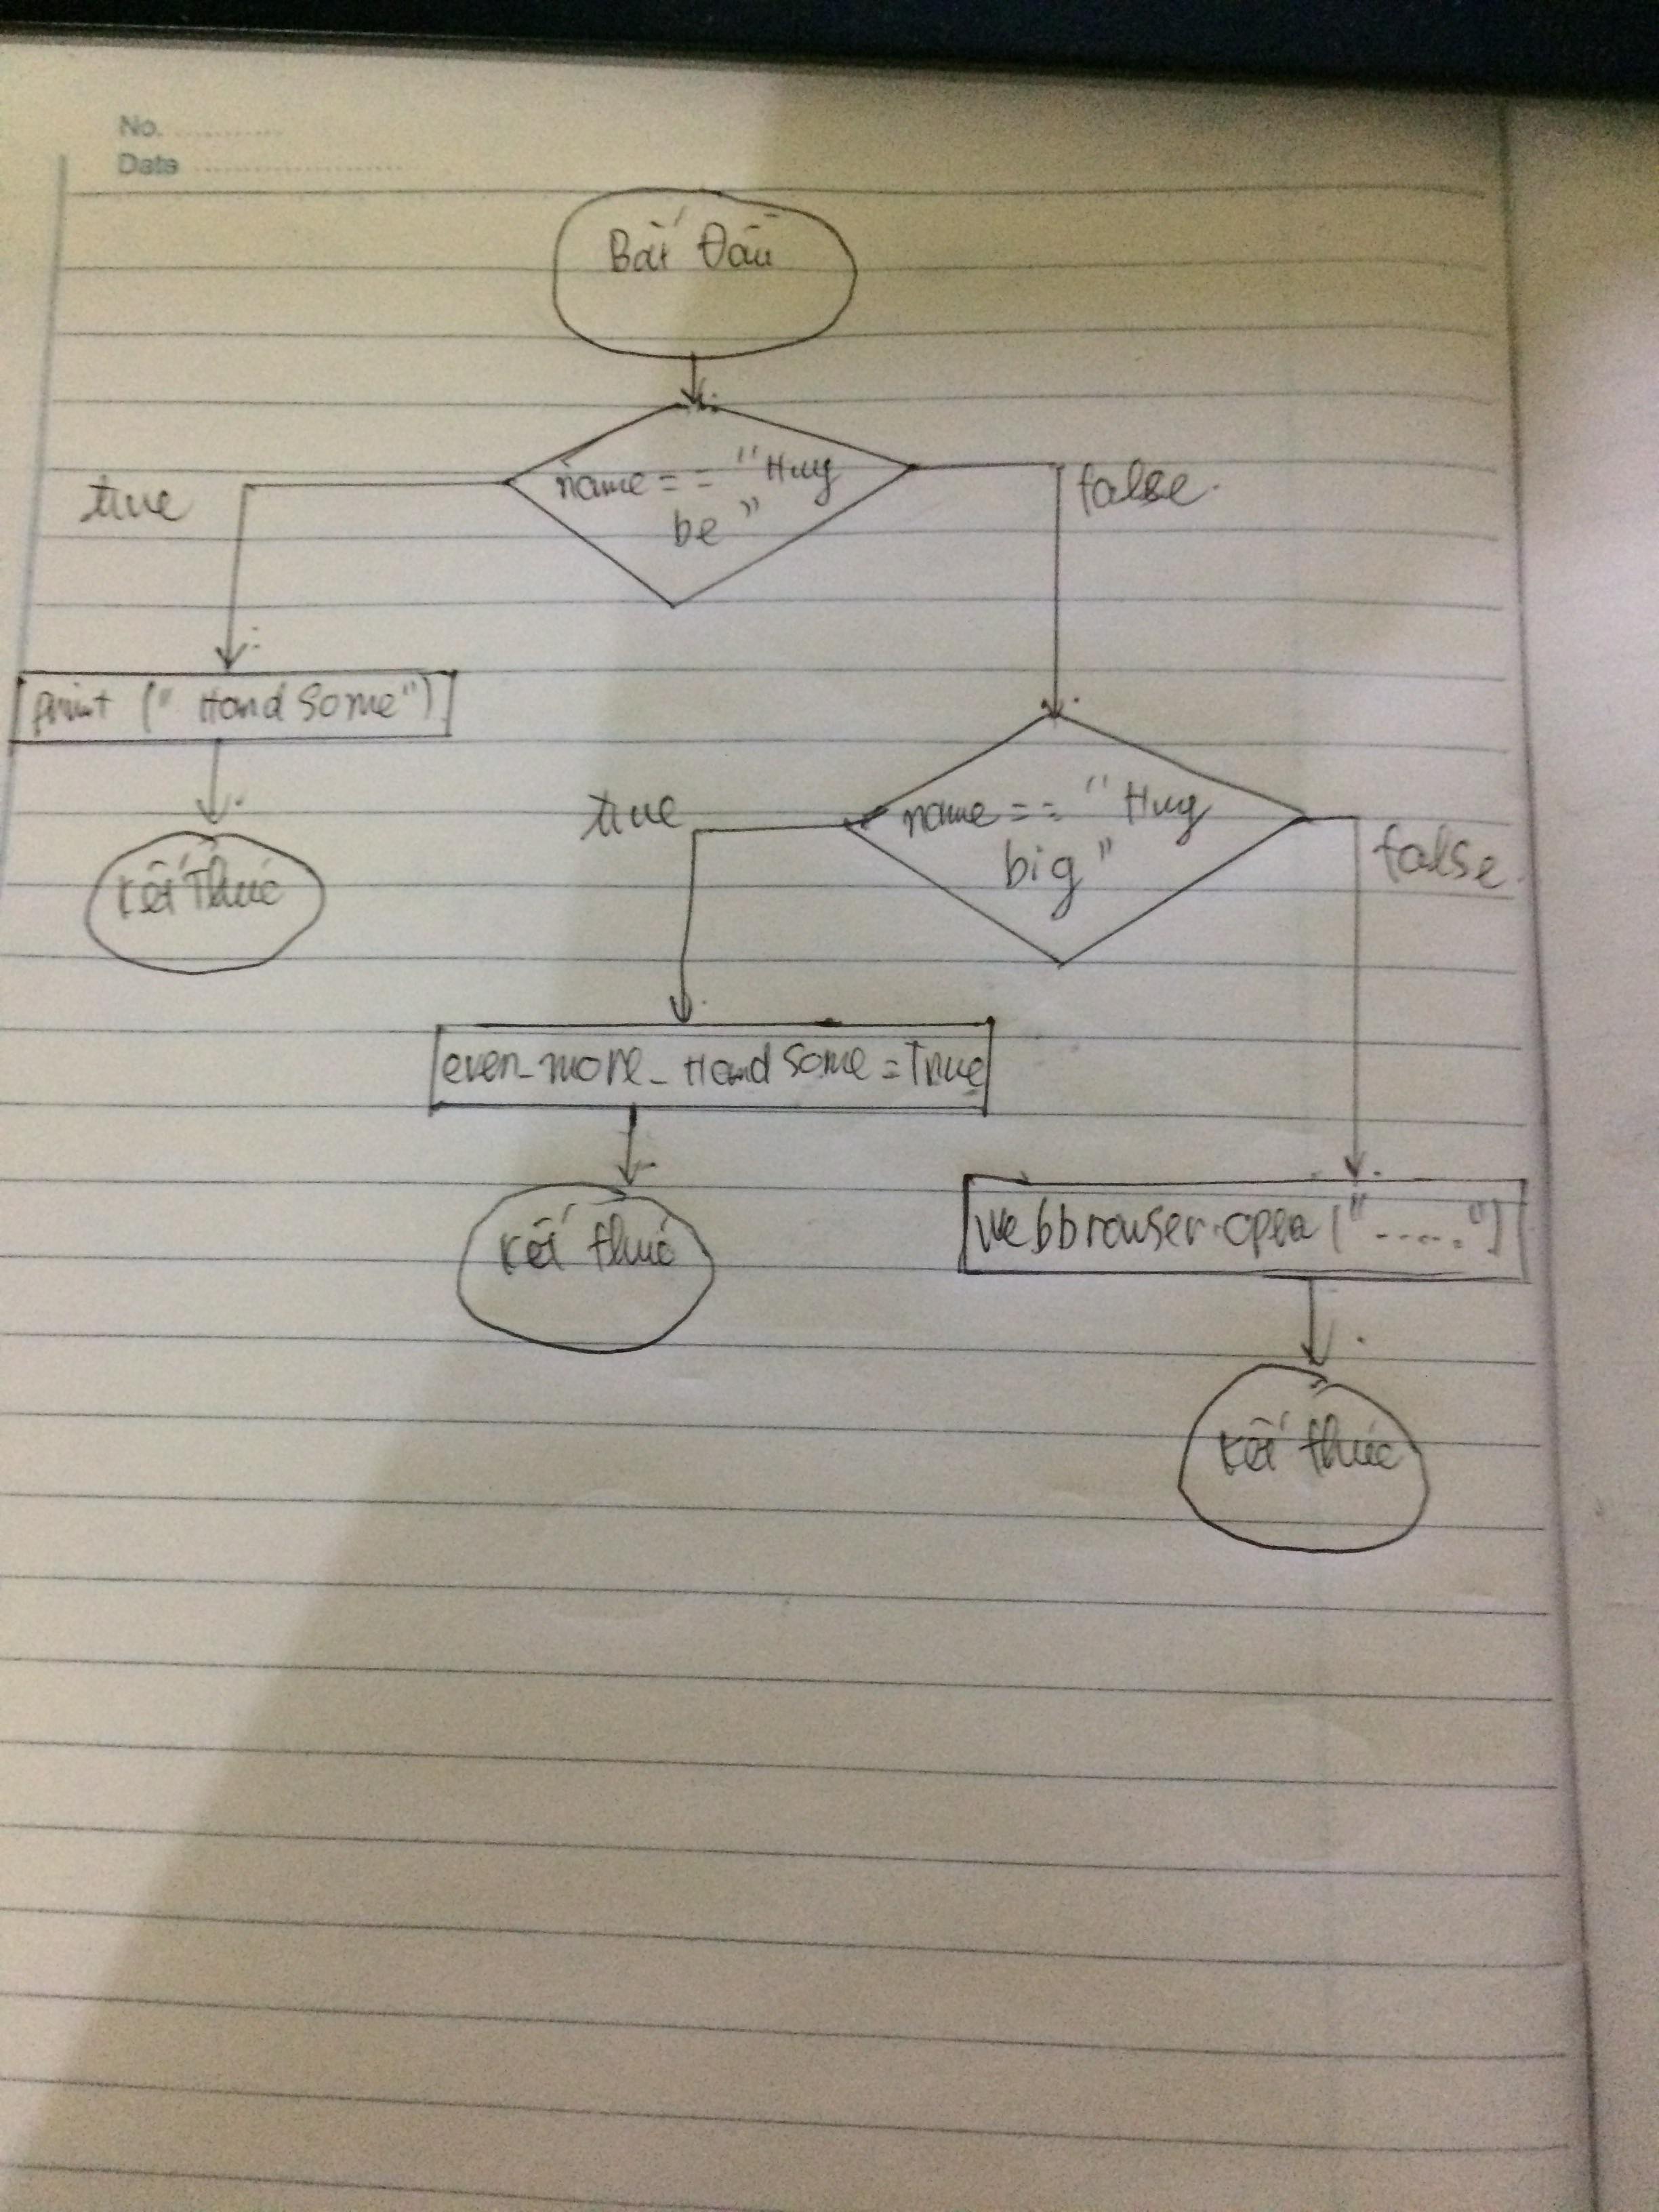 No.
Date
Bắt Đầu
name == "Huy
be"
true
false
print ("Hand Some")
Kết Thúc
name == "Huy
big"
true
false
even_more_Hand Some = True
Kết thúc
webbrowser.open(".....")
Kết thúc